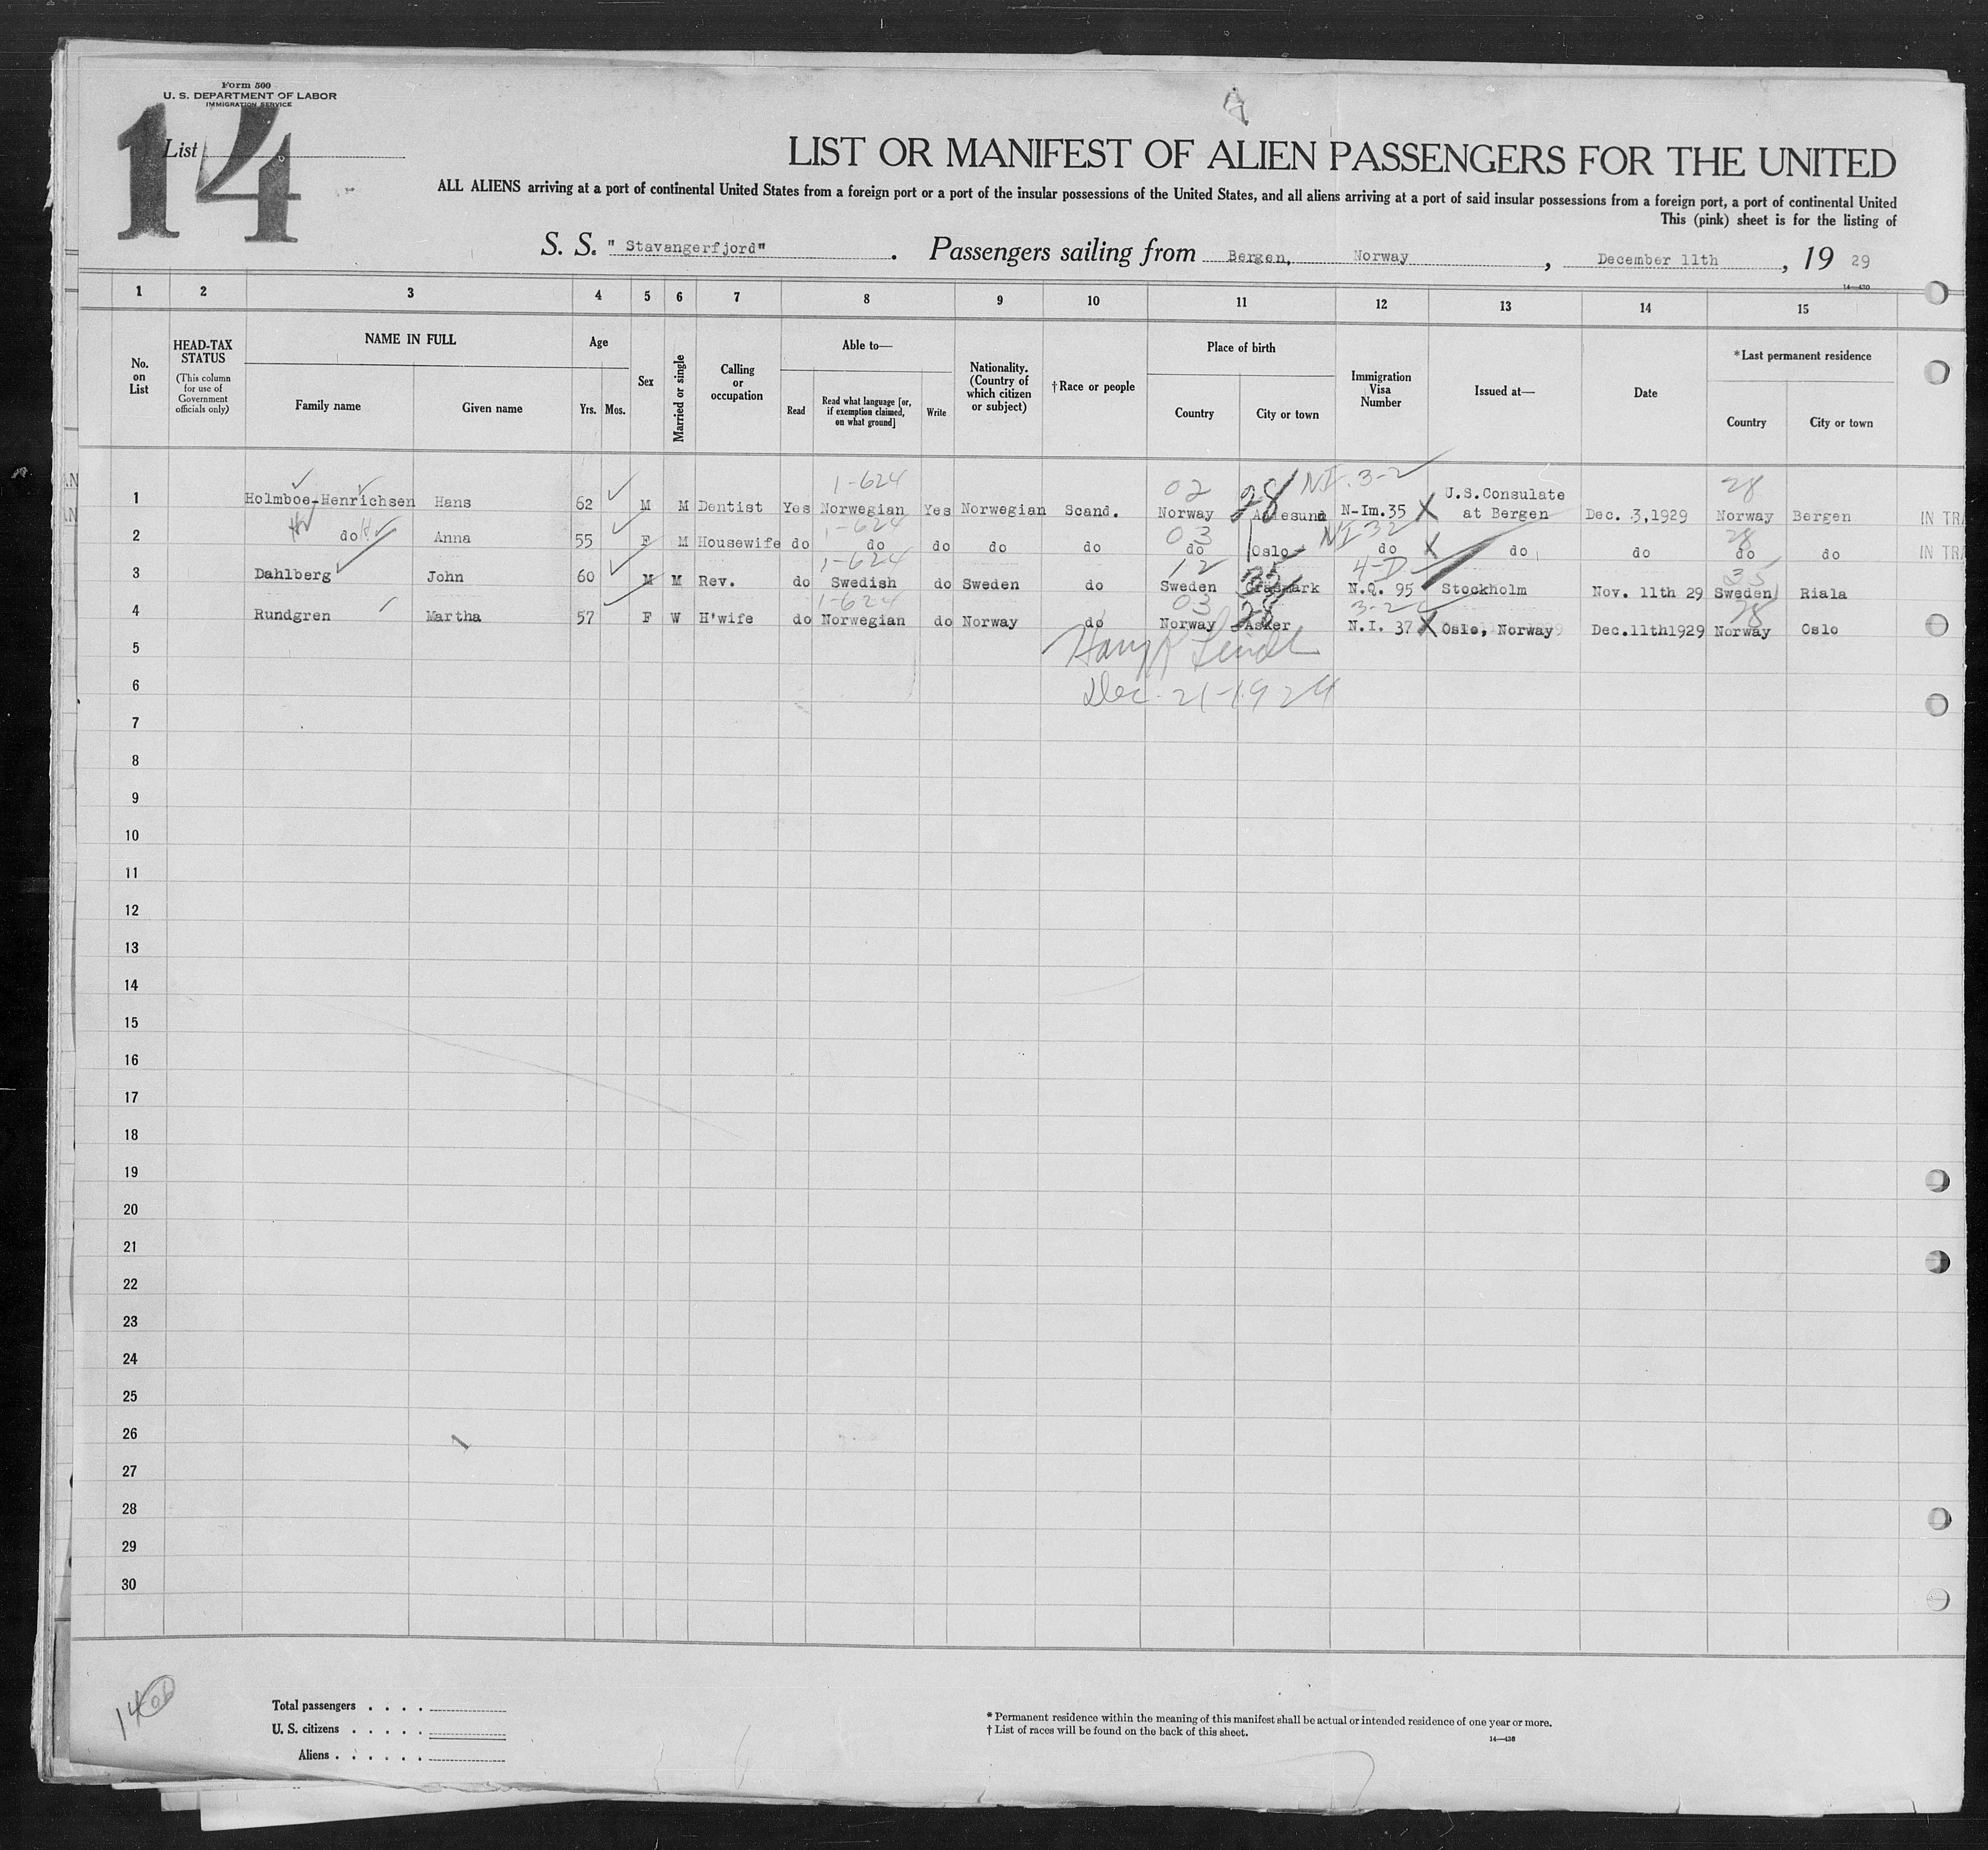 Form 500
U. S. DEPARTMENT OF LABOR
IMMIGRATION SERVICE
14
List
LIST OR MANIFEST OF ALIEN PASSENGERS FOR THE UNITED
ALL ALIENS arriving at a port of continental United States from a foreign port or a port of the insular possessions of the United States, and all aliens arriving at a port of said insular possessions from a foreign port, a port of continental United
This (pink) sheet is for the listing of
S. S. " Stavangerfjord" . Passengers sailing from Bergen, Norway , December 11th , 19 29
14—430
1 2 3 4 5 6 7 8 9 10 11 12 13 14 15
No. on List
HEAD-TAX STATUS
(This column for use of Government officials only)
NAME IN FULL
Family name Given name
Age
Yrs. Mos.
Sex
Married or single
Calling or occupation
Able to—
Read
Read what language [or, if exemption claimed, on what ground]
Write
Nationality. (Country of which citizen or subject)
†Race or people
Place of birth
Country City or town
Immigration Visa Number
Issued at—
Date
*Last permanent residence
Country City or town
1-624 02 28 NI.3-2 28
1 Holmboe-Henrichsen Hans 62 M M Dentist Yes Norwegian Yes Norwegian Scand. Norway Aalesund N-Im.35 X U.S.Consulate at Bergen Dec. 3,1929 Norway Bergen IN TRA
1-624 03 NI 32 28
2 do Anna 55 F M Housewife do do do do do do Oslo do X do do do do IN TRA
1-624 12 35 4-D 35
3 Dahlberg John 60 M M Rev. do Swedish do Sweden do Sweden Gräsmark N.Q. 95 Stockholm Nov. 11th 29 Sweden Riala
1-624 03 28 3-2 28
4 Rundgren Martha 57 F W H'wife do Norwegian do Norway do Norway Asker N.I. 37 X Oslo, Norway Dec.11th1929 Norway Oslo
5
6 Dec. 21-1929
7
8
9
10
11
12
13
14
15
16
17
18
19
20
21
22
23
24
25
26
27
28
29
30
14
Total passengers . . . .
U. S. citizens . . . . .
Aliens . . . . . .
* Permanent residence within the meaning of this manifest shall be actual or intended residence of one year or more.
† List of races will be found on the back of this sheet.
14—430